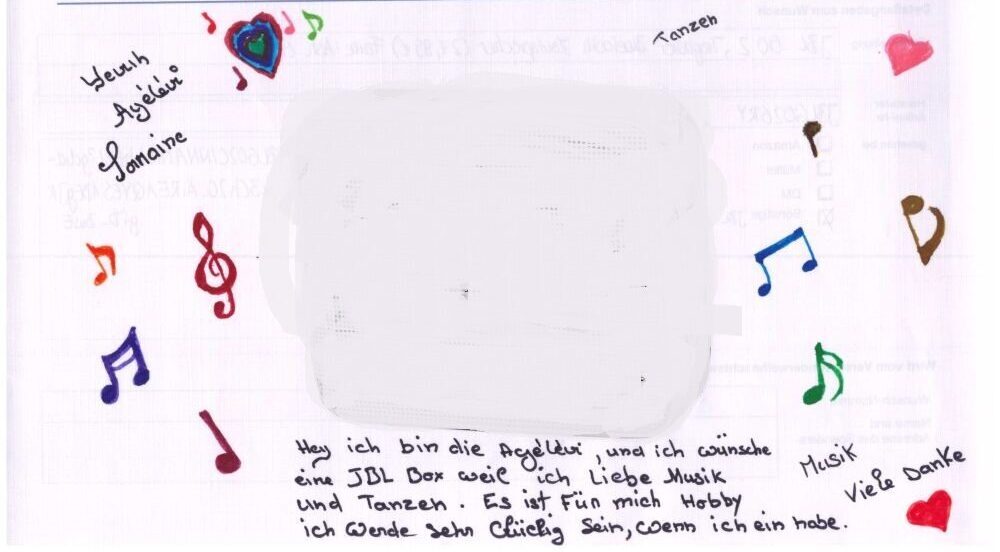 Ayélévi
Tanzen
Hey ich bin die Ayélévi, und ich wünsche
eine JBL Box weil ich Liebe Musik
und Tanzen. Es ist Für mich Hobby
ich Werde Sehr Glückig Sein, wenn ich ein habe.
Musik
Viele Danke